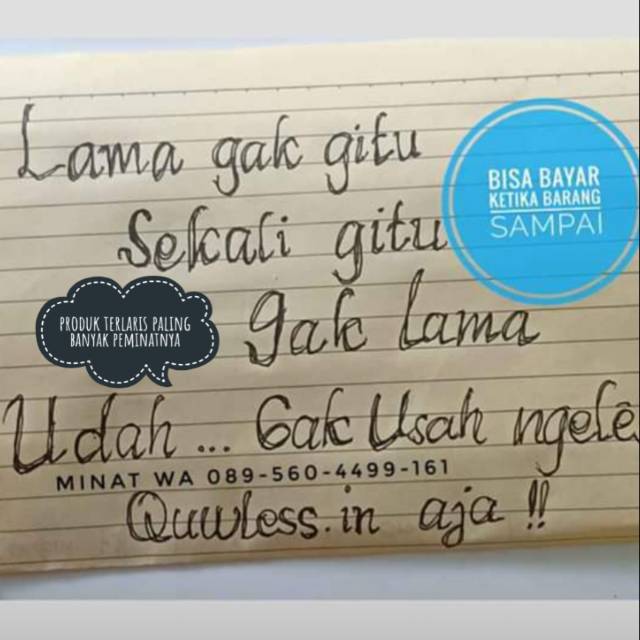 Lama gak gitu
BISA BAYAR
KETIKA BARANG
SAMPAI
Sekali gitu
PRODUK TERLARIS PALING
BANYAK PEMINATNYA
gak lama
Udah... Gak Usah ngelē
MINAT WA 089-560-4499-161
Quwless.in aja !!